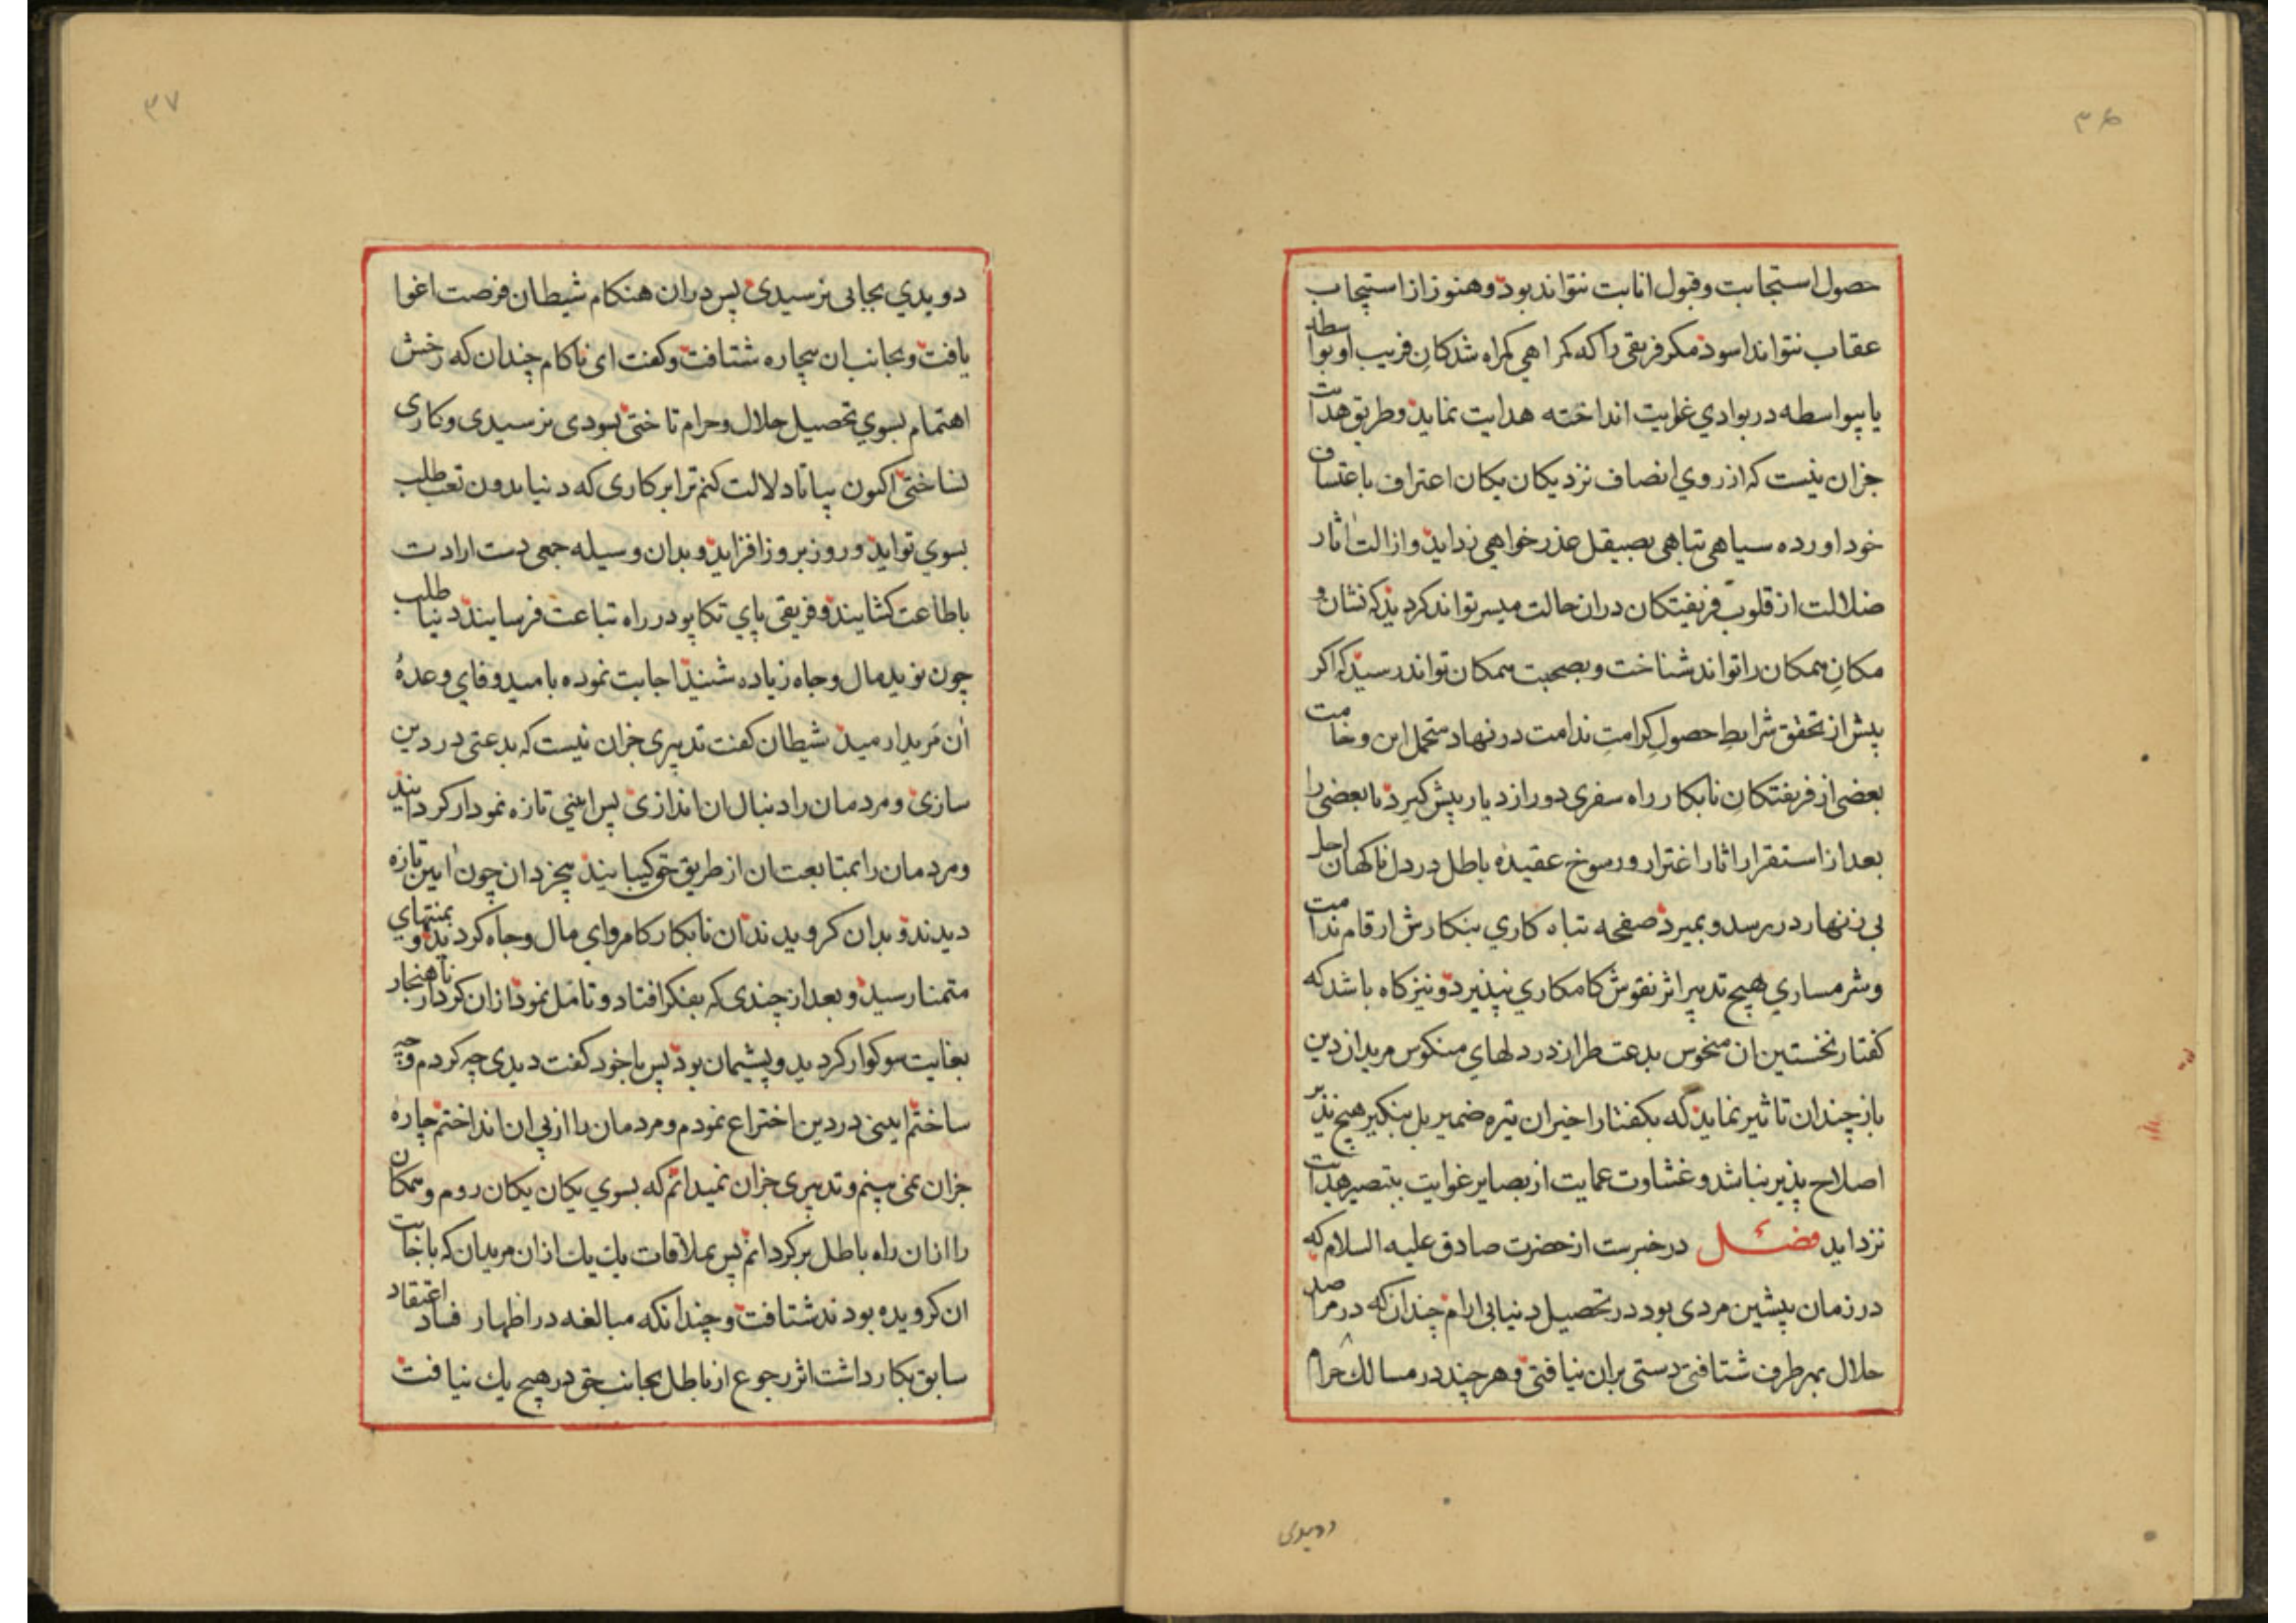 ۳۶
حصول استجابت وقبول انابت نتواند بود وهنوز از استیجاب
عقاب نتواند اسود مکر فریقی را که کمراهی کمراه شدکان فریب او بواسطه
یا بیواسطه در بوادي غوایت انداخته هدایت نماید وطریق هدایت
جزان نیست که از روي انصاف نزد یکان یکان اعتراف باعتساف
خود اورده سیاهی تباهی بصیقل عذر خواهی زداید وازالت اثار
ضلالت از قلوب فریفتکان دران حالت میسر تواند کردید که نشان و
مکان همکان را تواند شناخت وبصحبت همکان تواند رسید که اکر
پیش از تحقق شرایط حصول کرامت ندامت در نهاد متحمل این وخامت
بعضی از فریفتکان نابکار راه سفری دور از دیار پیش کیرد یا بعضی را
بعد از استقرار اثار اغترار ورسوخ عقیده باطل در دل ناکهان اجل
بی زنهار در رسد وبمیرد صفحه تباه کاري بنکارش ارقام ندامت
وشرمساري هیچ تدبیر اثر نقوش کامکاري نپذیرد ونیز کاه باشد که
کفتار نخستین ان منحوس بدعت طراز در دلهاي منکوس مریدان دین
باز چندان تاثیر نماید که بکفتار اخیر ان تیره ضمیر بل بنکیر هیچ نذیر
اصلاح پذیر نباشد وغشاوت عمایت از بصایر غوایت بتبصیر هدایت
نزداید فصل در خبرست از حضرت صادق علیه السلام که
در زمان پیشین مردی بود در تحصیل دنیا بی ارام چندان که در مراصد
حلال بهر طرف شتافتی دستی بران نیافتی وهر چند در مسالك حرام
دویدی
۳۷
دویدي بجایی نرسیدی پس دران هنکام شیطان فرصت اغوا
یافت وبجانب ان بیچاره شتافت وکفت ای ناکام چندان که رخش
اهتمام بسوي تحصیل حلال وحرام تاختی بسودی نرسیدی وکاری
نساختی اکنون بیا تا دلالت کنم ترا بر کاری که دنیا بدون تعب طلب
بسوي تو اید وروز بروز افزاید وبدان وسیله جمعی دست ارادت
باطاعت کشایند وفریقی پاي تکاپو در راه تباعت فرسایند دنیا طلب
چون نوید مال وجاه زیاده شنید اجابت نموده بامید وفاي وعدهٔ
ان مرید ارمید شیطان کفت تدبیری جزان نیست که بدعتی در دین
سازی ومردمان را دنبال ان اندازی پس ایینی تازه نمودار کردانید
ومردمان را بمتابعت ان از طریق حق کیبانید بیخردان چون ایین تازه
دیدند وبدان کرویدند ان نابکار کامروای مال وجاه کردید وبمنتهاي
متمنا رسید وبعد از چندی که بفکر افتاد وتامل نمود ازان کردار ناهنجار
بغایت سوکوار کردید وپشیمان بود پس با خود کفت دیدی چه کردم وچه
ساختم ایینی در دین اختراع نمودم ومردمان را از پی ان انداختم چاره
جزان نمی بینم وتدبیری جزان نمیدانم که بسوي یکان یکان روم وهمکان
را ازان راه باطل برکردانم پس بملاقات یك یك ازان مریدان که باجابت
ان کرویده بودند شتافت وچندانکه مبالغه در اظهار فساد اعتقاد
سابق بکار داشت اثر رجوع از باطل بجانب حق در هیچ یك نیافت